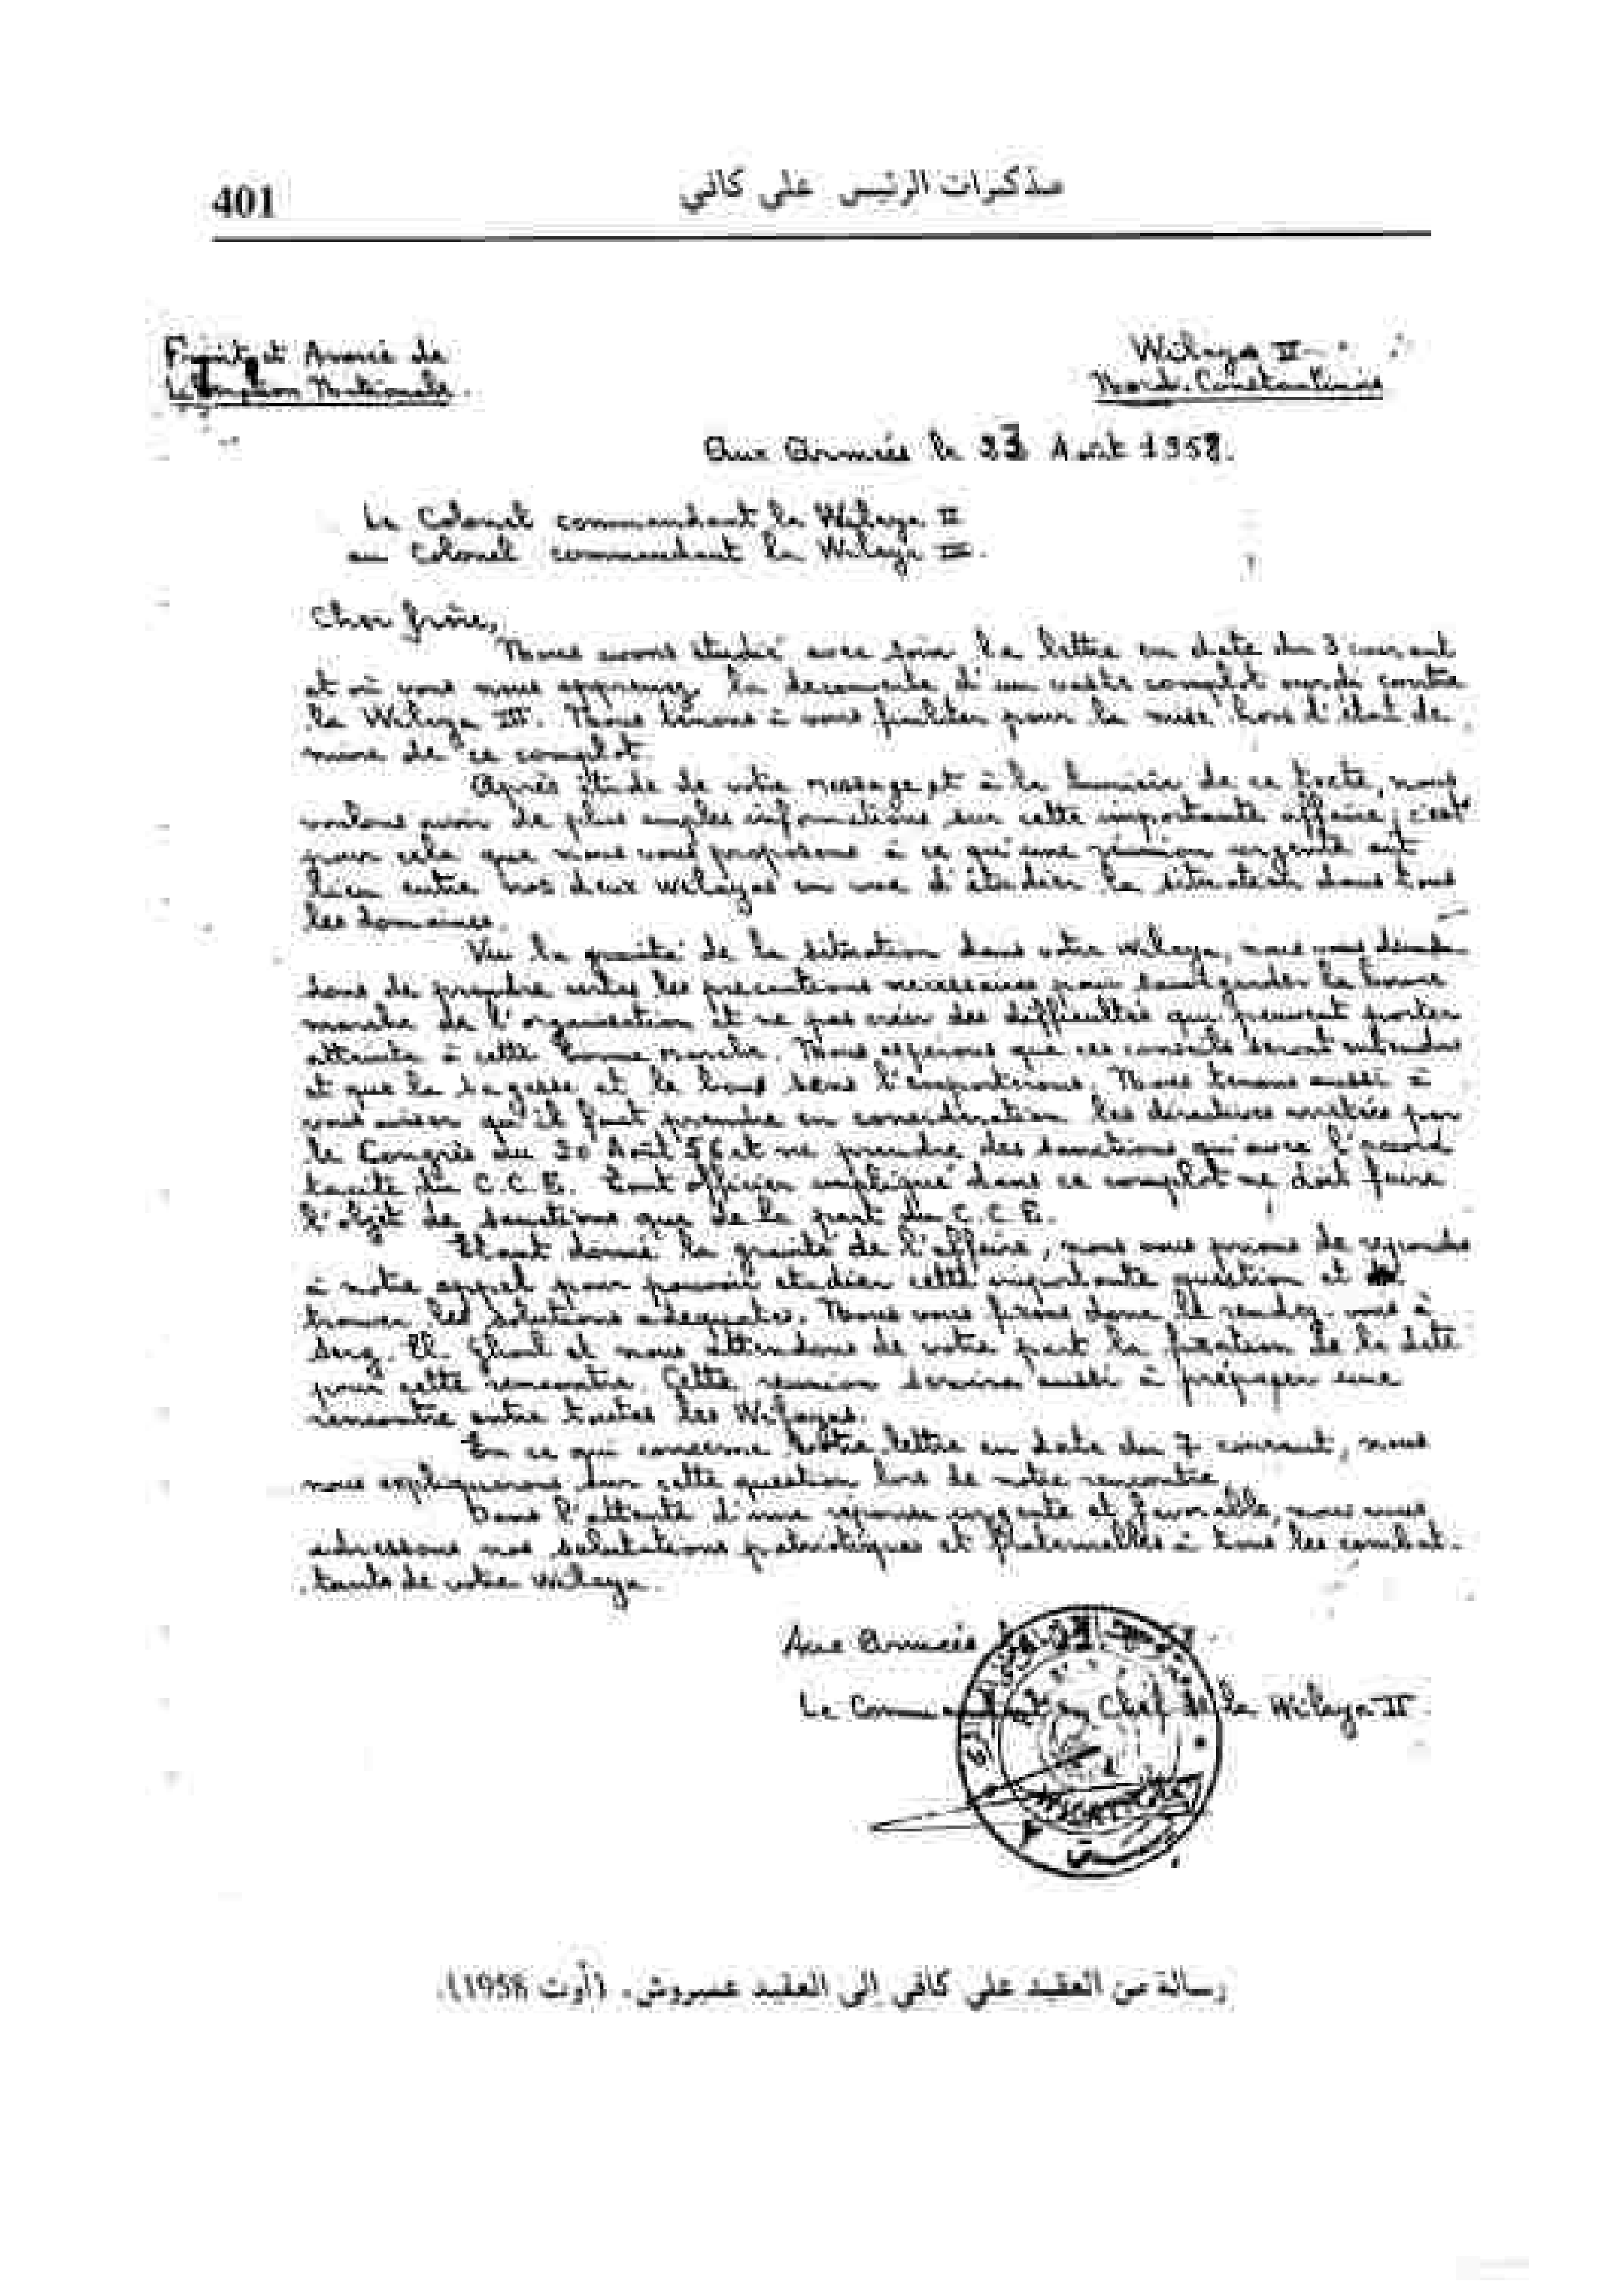 401
مذكرات الرئيس علي كافي
Front et Armée de
Libération Nationale.
Wilaya II
Nord-Constantinois
Aux Armées le 23 Août 1958.
Le Colonel commandant la Wilaya II
au Colonel commandant la Wilaya III.
Cher frère,
Nous avons étudié avec soin la lettre en date du 3 courant
et où vous nous apprenez la découverte d'un vaste complot ourdi contre
la Wilaya III. Nous tenons à vous féliciter pour la mise hors d'état de
nuire de ce complot.
Après étude de votre message et à la lumière de ce texte, nous
voulons avoir de plus amples informations sur cette importante affaire; c'est
pour cela que nous vous proposons à ce qu'une réunion urgente ait
lieu entre nos deux wilayas en vue d'étudier la situation dans tous
les domaines.
Vu la gravité de la situation dans votre wilaya, nous vous deman-
dons de prendre toutes les précautions nécessaires pour sauvegarder la bonne
marche de l'organisation et ne pas créer des difficultés qui peuvent porter
atteinte à cette bonne marche. Nous espérons que ces conseils seront entendus
et que la sagesse et le bon sens l'emporterons. Nous tenons aussi à
vous aviser qu'il faut prendre en considération les directives arrêtées par
le Congrès du 20 Août 56 et ne prendre des sanctions qu'avec l'accord
tacite du C.C.E. Tout officier impliqué dans ce complot ne doit faire
l'objet de sanctions que de la part du C.C.E.
Etant donné la gravité de l'affaire, nous vous prions de répondre
à notre appel pour pouvoir étudier cette importante question et
trouver les solutions adéquates. Nous vous fixons donc le rendez-vous à
El-Ghoul et nous attendons de votre part la fixation de la date
pour cette rencontre. Cette réunion servira aussi à préparer une
rencontre entre toutes les Wilayas.
En ce qui concerne votre lettre en date du 7 courant, nous
nous expliquerons sur cette question lors de notre rencontre.
Dans l'attente d'une réponse urgente et favorable, nous vous
adressons nos salutations patriotiques et fraternelles à tous les combat-
tants de votre wilaya.
Aux Armées
Le Commandant en Chef de la Wilaya II
رسالة من العقيد علي كافي إلى العقيد عميروش. (أوت 1958).